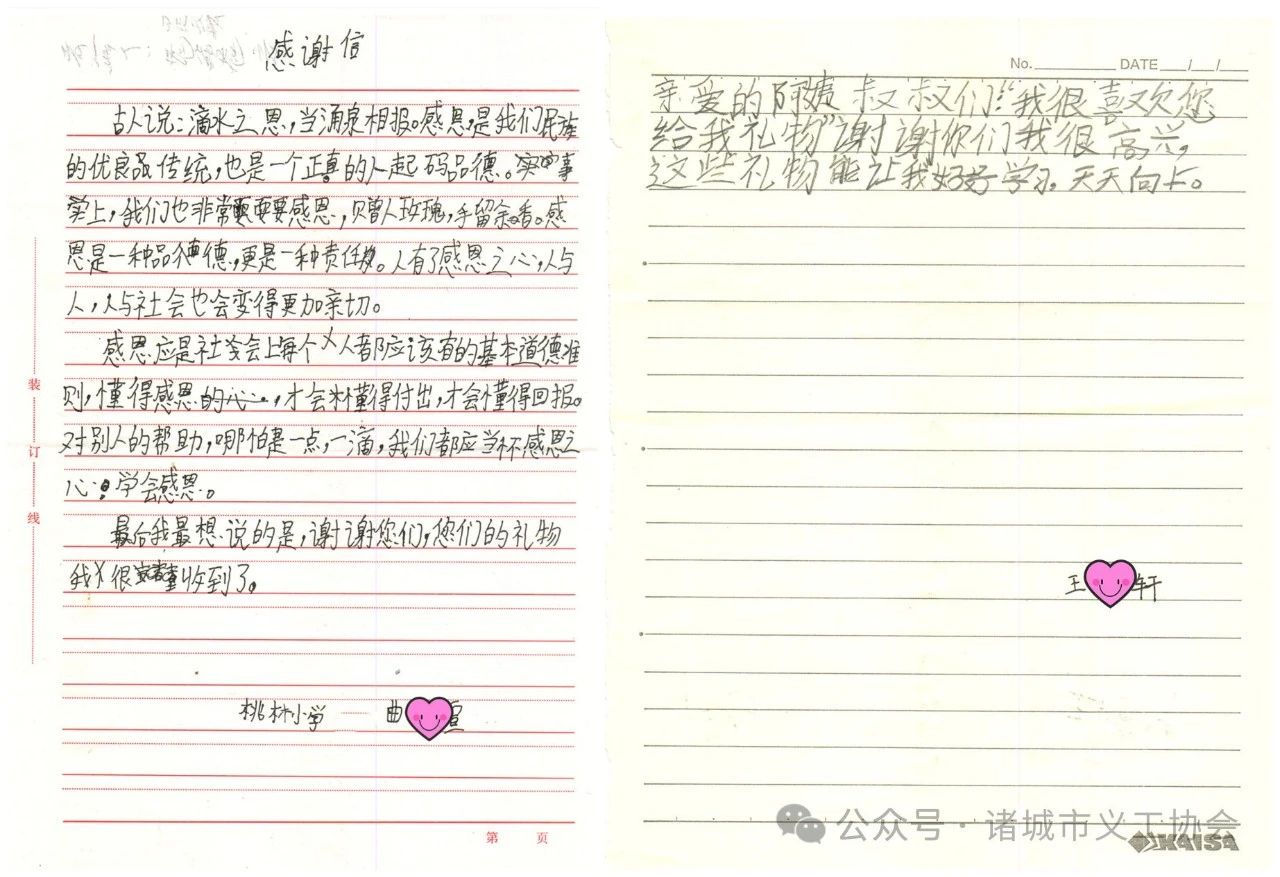 感谢信
古人说：滴水之恩，当涌泉相报。感恩是我们民族
的优良品传统，也是一个正真的人起码品德。实事
实上，我们也非常要感恩，赠人玫瑰，手留余香。感
恩是一种品德，更是一种责任。人有了感恩之心，人与
人，人与社会也会变得更加亲切。
感恩应是社会上每个人都应该有的基本道德准
则，懂得感恩的心，才会懂得付出，才会懂得回报。
对别人的帮助，哪怕是一点，一滴，我们都应当怀感恩之
心。学会感恩。
最后我最想说的是，谢谢您们，您们的礼物
我很收到了。
桃林小学 曲 宣
装
订
线
第 页
No. DATE / /
亲爱的阿姨叔叔们：“我很喜欢您
给我礼物”谢谢你们我很高兴，
这些礼物能让我好好学习，天天向上。
王 轩
公众号·诸城市义工协会
KAISA